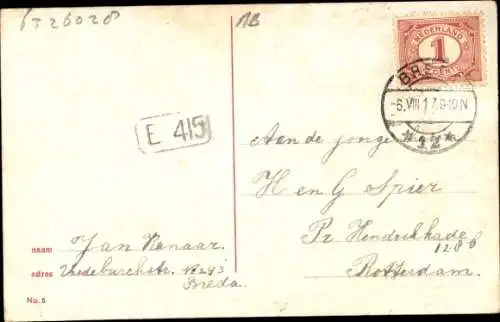 6326028
1B
NEDERLAND
1
CENT
BRE
-6.VIII.17.9-10N
* 12 *
E 415
Aan de jonge
H en G Spier
Pr Hendrikkade
128 b
Rotterdam.
naam Jan
adres Vredeburchstr. No 293
Breda.
No. 5